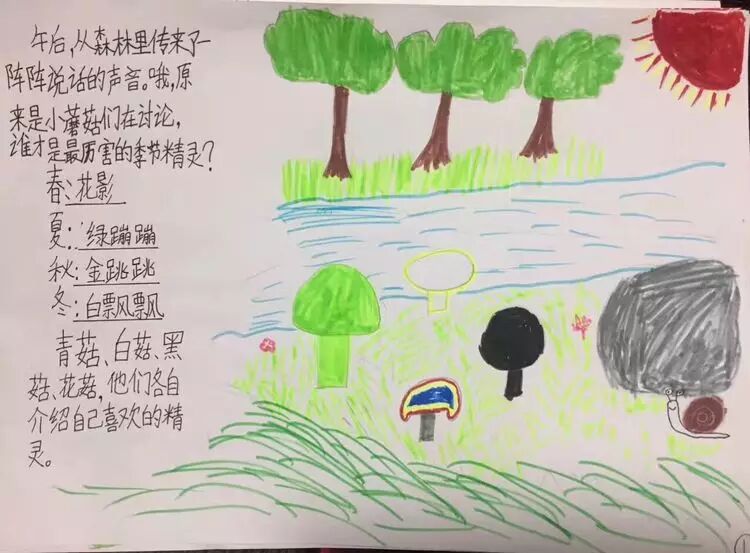 午后,从森林里传来了一
阵阵说话的声音。哦,原
来是小蘑菇们在讨论,
谁才是最厉害的季节精灵?
春:花影
夏:绿蹦蹦
秋:金跳跳
冬:白飘飘
青菇、白菇、黑
菇、花菇,他们各自
介绍自己喜欢的精
灵。